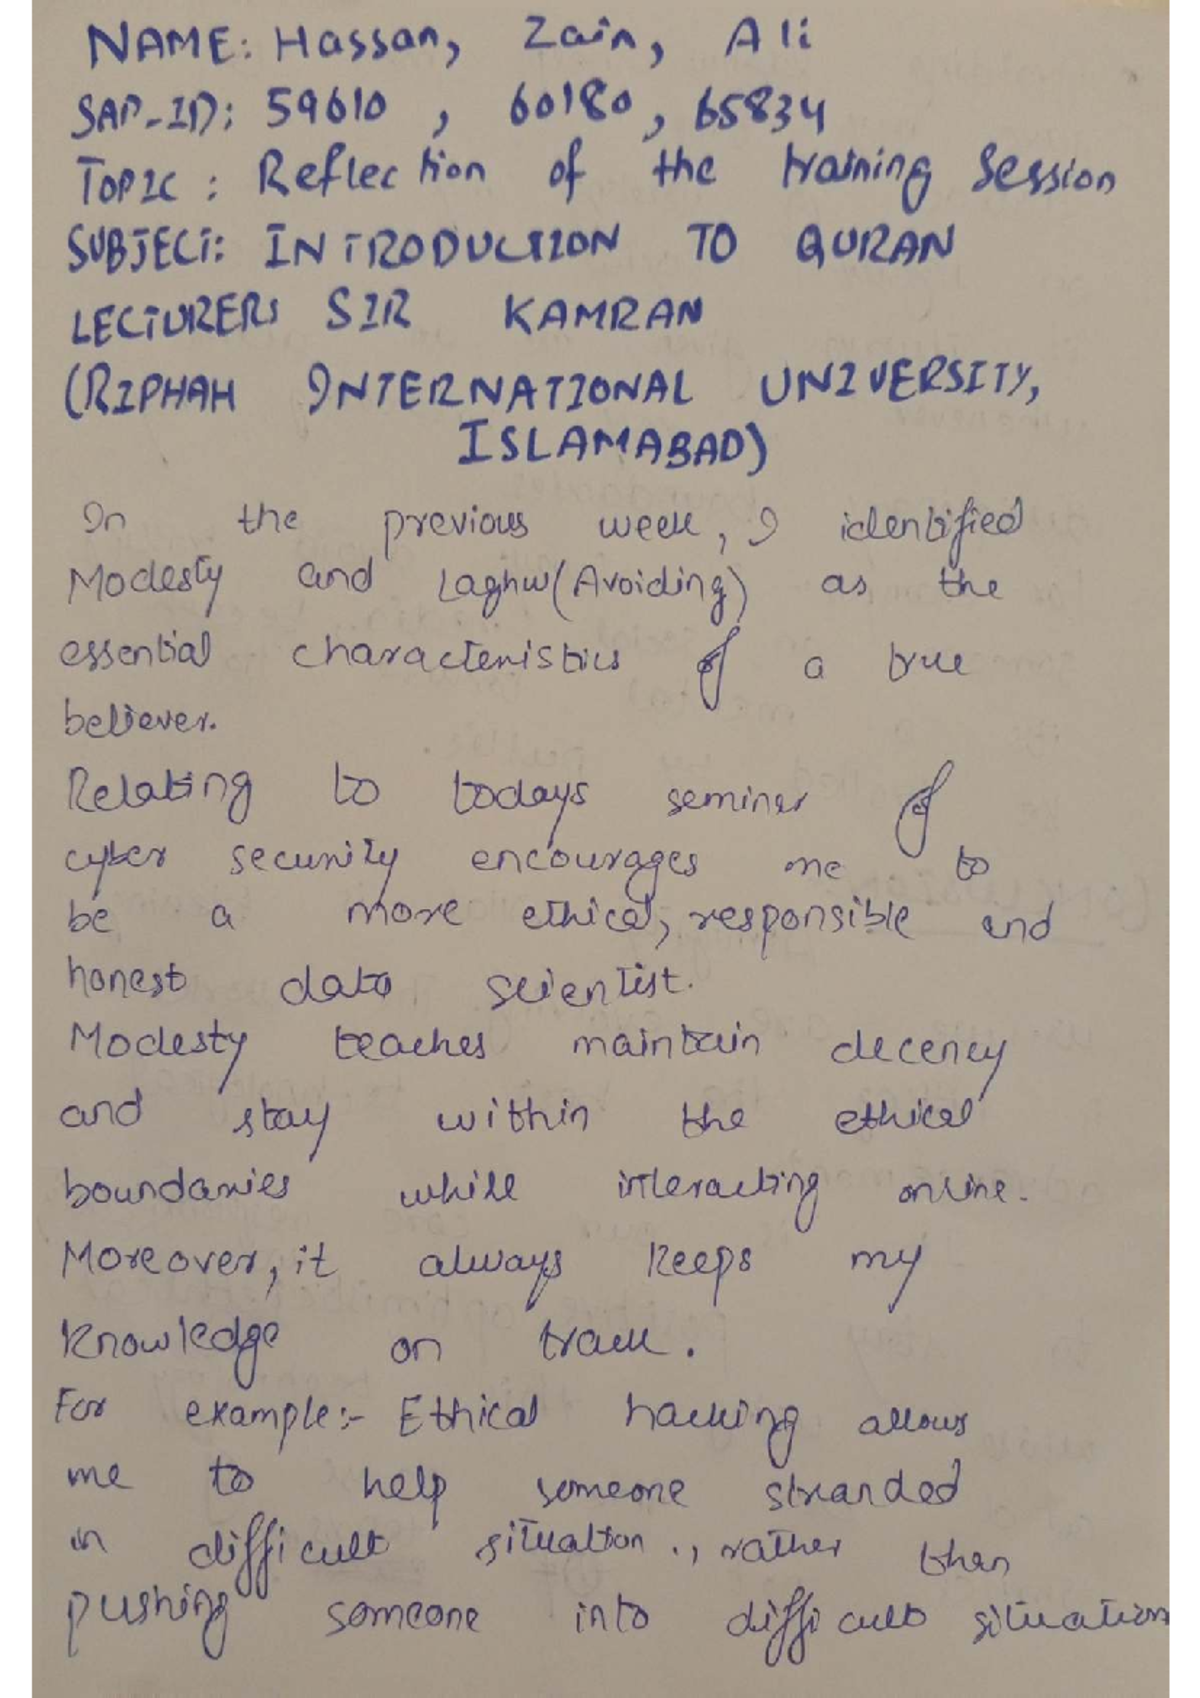 NAME: Hassan, Zain, Ali
SAP-ID: 59610, 60180, 65834
TOPIC: Reflection of the training Session
SUBJECT: INTRODUCTION TO QURAN
LECTURER: SIR KAMRAN
(RIPHAH INTERNATIONAL UNIVERSITY,
ISLAMABAD)
In the previous week, I identified
Modesty and Laghw(Avoiding) as the
essential characteristics of a true
believer.
Relating to todays seminar of
cyber security encourages me to
be a more ethical, responsible and
honest data scientist.
Modesty teaches maintain decency
and stay within the ethical
boundaries while interacting online.
Moreover, it always keeps my
knowledge on track.
For example:- Ethical hacking allows
me to help someone stranded
in difficult situation., rather than
pushing someone into difficult situation